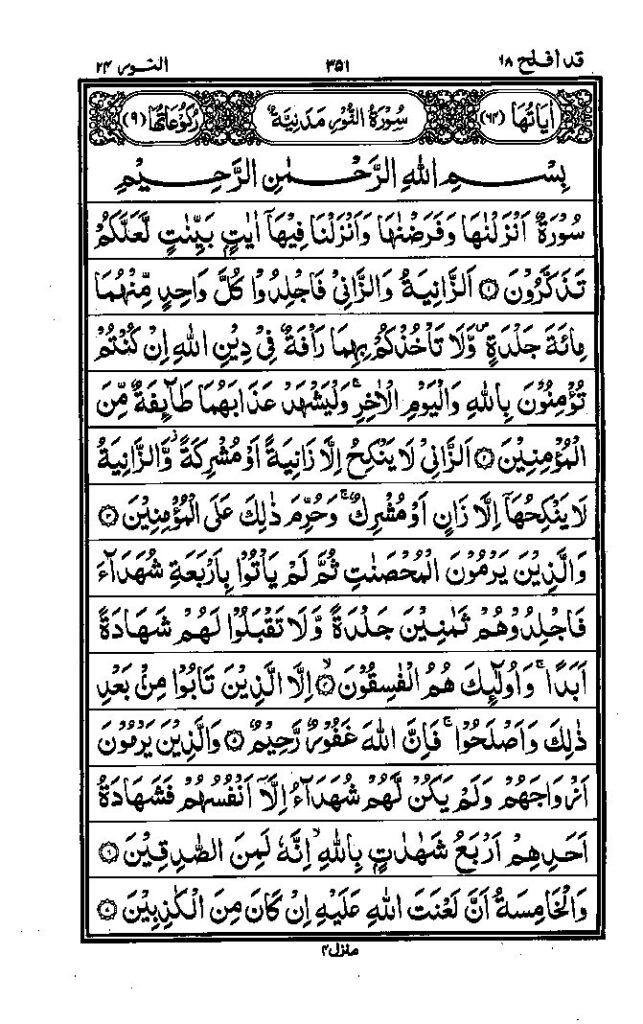 قد افلح ١٨ ٣٥١ النور ٢٤
اٰيَاتُهَا (٦٤) سُوْرَةُ النُّوْرِ مَدَنِيَّةٌ رُكُوْعَاتُهَا (٩)
بِسْمِ اللهِ الرَّحْمٰنِ الرَّحِيْمِ
سُوْرَةٌ اَنْزَلْنٰهَا وَفَرَضْنٰهَا وَاَنْزَلْنَا فِيْهَآ اٰيٰتٍۭ بَيِّنٰتٍ لَّعَلَّكُمْ
تَذَكَّرُوْنَ ۝١ اَلزَّانِيَةُ وَالزَّانِىْ فَاجْلِدُوْا كُلَّ وَاحِدٍ مِّنْهُمَا
مِائَةَ جَلْدَةٍ ۪ وَّلَا تَاْخُذْكُمْ بِهِمَا رَاْفَةٌ فِىْ دِيْنِ اللهِ اِنْ كُنْتُمْ
تُؤْمِنُوْنَ بِاللهِ وَالْيَوْمِ الْاٰخِرِ ۚ وَلْيَشْهَدْ عَذَابَهُمَا طَآئِفَةٌ مِّنَ
الْمُؤْمِنِيْنَ ۝٢ اَلزَّانِىْ لَا يَنْكِحُ اِلَّا زَانِيَةً اَوْ مُشْرِكَةً ۫ وَّالزَّانِيَةُ
لَا يَنْكِحُهَآ اِلَّا زَانٍ اَوْ مُشْرِكٌ ۚ وَحُرِّمَ ذٰلِكَ عَلَى الْمُؤْمِنِيْنَ ۝٣
وَالَّذِيْنَ يَرْمُوْنَ الْمُحْصَنٰتِ ثُمَّ لَمْ يَاْتُوْا بِاَرْبَعَةِ شُهَدَآءَ
فَاجْلِدُوْهُمْ ثَمٰنِيْنَ جَلْدَةً وَّلَا تَقْبَلُوْا لَهُمْ شَهَادَةً
اَبَدًا ۚ وَاُولٰٓئِكَ هُمُ الْفٰسِقُوْنَ ۝٤ اِلَّا الَّذِيْنَ تَابُوْا مِنْۢ بَعْدِ
ذٰلِكَ وَاَصْلَحُوْا ۚ فَاِنَّ اللهَ غَفُوْرٌ رَّحِيْمٌ ۝٥ وَالَّذِيْنَ يَرْمُوْنَ
اَزْوَاجَهُمْ وَلَمْ يَكُنْ لَّهُمْ شُهَدَآءُ اِلَّآ اَنْفُسُهُمْ فَشَهَادَةُ
اَحَدِهِمْ اَرْبَعُ شَهٰدٰتٍۭ بِاللهِ ۙ اِنَّهٗ لَمِنَ الصّٰدِقِيْنَ ۝٦
وَالْخَامِسَةُ اَنَّ لَعْنَتَ اللهِ عَلَيْهِ اِنْ كَانَ مِنَ الْكٰذِبِيْنَ ۝٧
منزل ٤